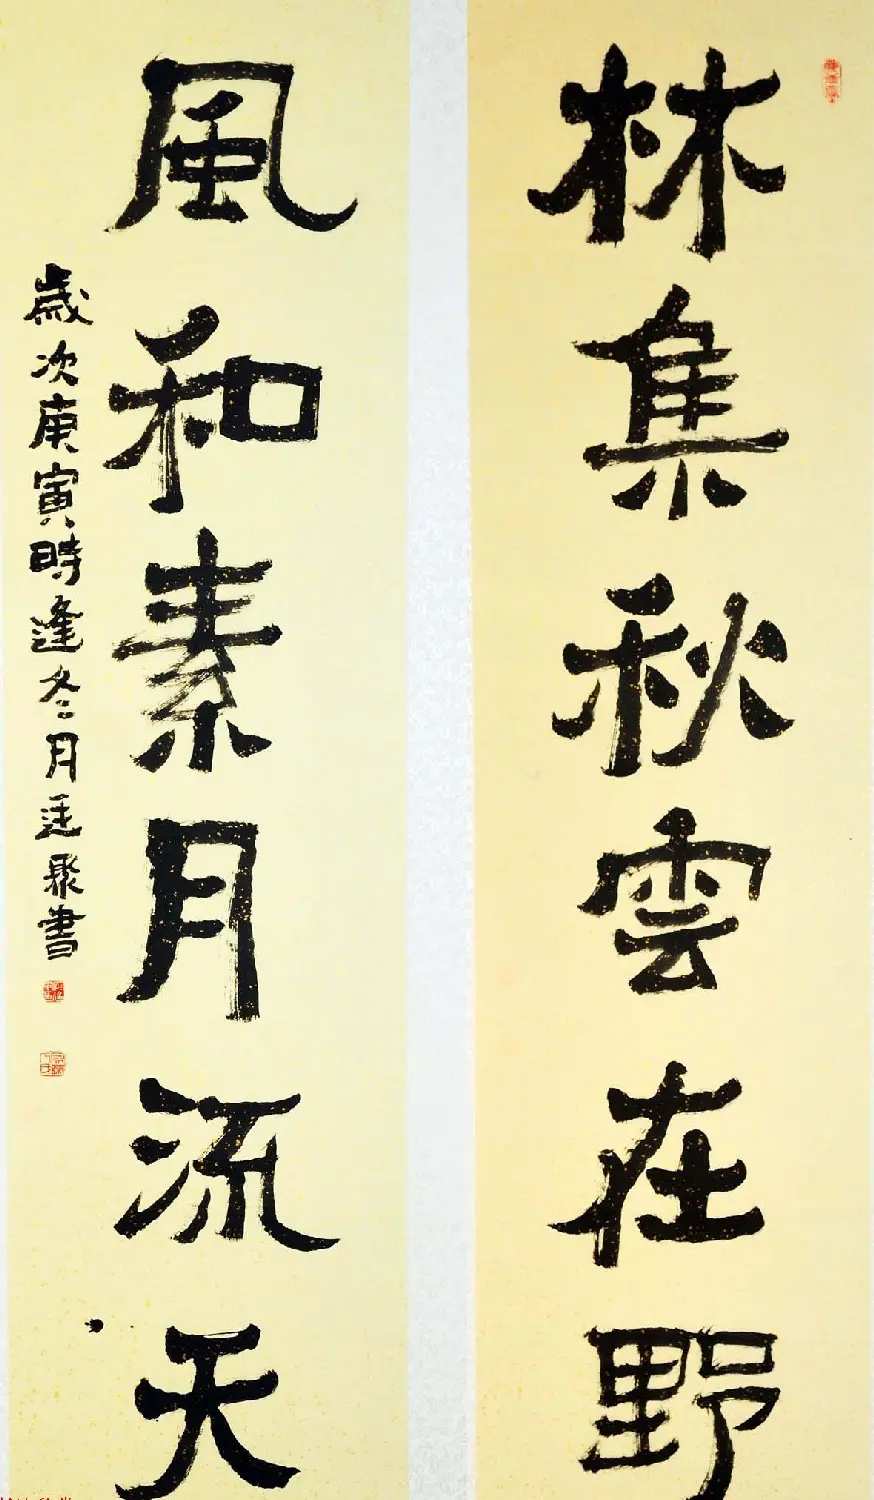 林集秋雲在野
風和素月流天
歲次庚寅時逢冬月廷聚書